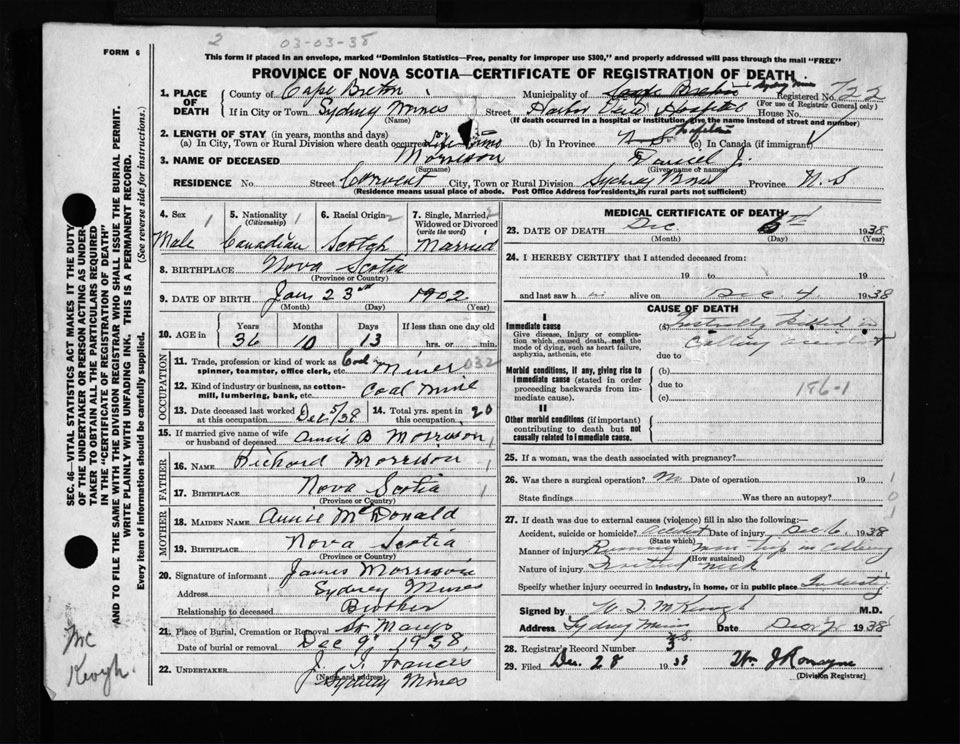 2 03-03-38
FORM 6
This form if placed in an envelope, marked "Dominion Statistics—Free, penalty for improper use $300," and properly addressed will pass through the mail "FREE"
PROVINCE OF NOVA SCOTIA—CERTIFICATE OF REGISTRATION OF DEATH
1. PLACE OF DEATH County of Cape Breton Municipality of Sydney Mines Registered No. 722
If in City or Town Sydney Mines Street Harbor View Hospital House No. (For use of Registrar General only)
(Name) (If death occurred in a hospital or institution, give the name instead of street and number)
2. LENGTH OF STAY (in years, months and days)
(a) In City, Town or Rural Division where death occurred Life Time (b) In Province N.S. (c) In Canada (if immigrant)
3. NAME OF DECEASED Morrison Daniel J.
(Surname) (Given name or names)
RESIDENCE No. Street Convent City, Town or Rural Division Sydney Mines Province N.S
(Residence means usual place of abode. Post Office Address for residents in rural parts not usual)
4. Sex 1 5. Nationality 1 6. Racial Origin 2 7. Single, Married, 2
(Citizenship) Widowed or Divorced
(write the word)
Male Canadian Scotch Married
8. BIRTHPLACE Nova Scotia
(Province or Country)
9. DATE OF BIRTH Jan 23rd 1902
(Month) (Day) (Year)
10. AGE in Years Months Days If less than one day
36 10 13 hrs. or min.
OCCUPATION
11. Trade, profession or kind of work as spinner, teamster, office clerk, etc. Coal Miner 032
12. Kind of industry or business, as cotton-mill, lumbering, bank, etc. Coal Mine
13. Date deceased last worked at this occupation Dec 5/38 14. Total yrs. spent in this occupation 20
15. If married give name of wife or husband of deceased Annie B Morrison 1
FATHER
16. NAME Richard Morrison 1
17. BIRTHPLACE Nova Scotia 1
(Province or Country)
MOTHER
18. MAIDEN NAME Annie McDonald
19. BIRTHPLACE Nova Scotia
(Province or Country)
20. Signature of informant James Morrison
Address Sydney Mines
Relationship to deceased Brother
21. Place of Burial, Cremation or Removal St Marys
Date of burial or removal Dec 9, 1938
22. UNDERTAKER J. J. Francis
(Name and address)
Sydney Mines
MEDICAL CERTIFICATE OF DEATH
23. DATE OF DEATH Dec 1938
(Month) (Day) (Year)
24. I HEREBY CERTIFY that I attended deceased from:
19 to 19
and last saw h alive on Dec 4 1938
CAUSE OF DEATH
I
Immediate cause
Give disease, injury or complication which caused death, not the mode of dying, such as heart failure, asphyxia, asthenia, etc
(a) killed in
Colliery accident
due to
Morbid conditions, if any, giving rise to immediate cause (stated in order proceeding backwards from immediate cause).
(b)
due to
(c) 186-1
II
Other morbid conditions (if important) contributing to death but not causally related to immediate cause.
25. If a woman, was the death associated with pregnancy?
26. Was there a surgical operation? No Date of operation 19
State findings Was there an autopsy?
27. If death was due to external causes (violence) fill in also the following:—
Accident, suicide or homicide? Accident Date of injury Dec 6, 1938
(State which)
Manner of injury Running man trip in colliery
(How sustained)
Nature of injury Fractured neck
Specify whether injury occurred in industry, in home, or in public place Industry
Signed by M.D.
Address Sydney Mines Date Dec 1938
28. Registrar's Record Number 3
29. Filed Dec. 28 1938 Wm J Romayne
(Division Registrar)
SEC. 46—VITAL STATISTICS ACT MAKES IT THE DUTY OF THE UNDERTAKER OR PERSON ACTING AS UNDERTAKER TO OBTAIN ALL THE PARTICULARS REQUIRED IN THE "CERTIFICATE OF REGISTRATION OF DEATH"
AND TO FILE THE SAME WITH THE DIVISION REGISTRAR WHO SHALL ISSUE THE BURIAL PERMIT.
WRITE PLAINLY WITH UNFADING INK. THIS IS A PERMANENT RECORD.
Every item of information should be carefully supplied. (See reverse side for instructions.)
Mc
Keogh.